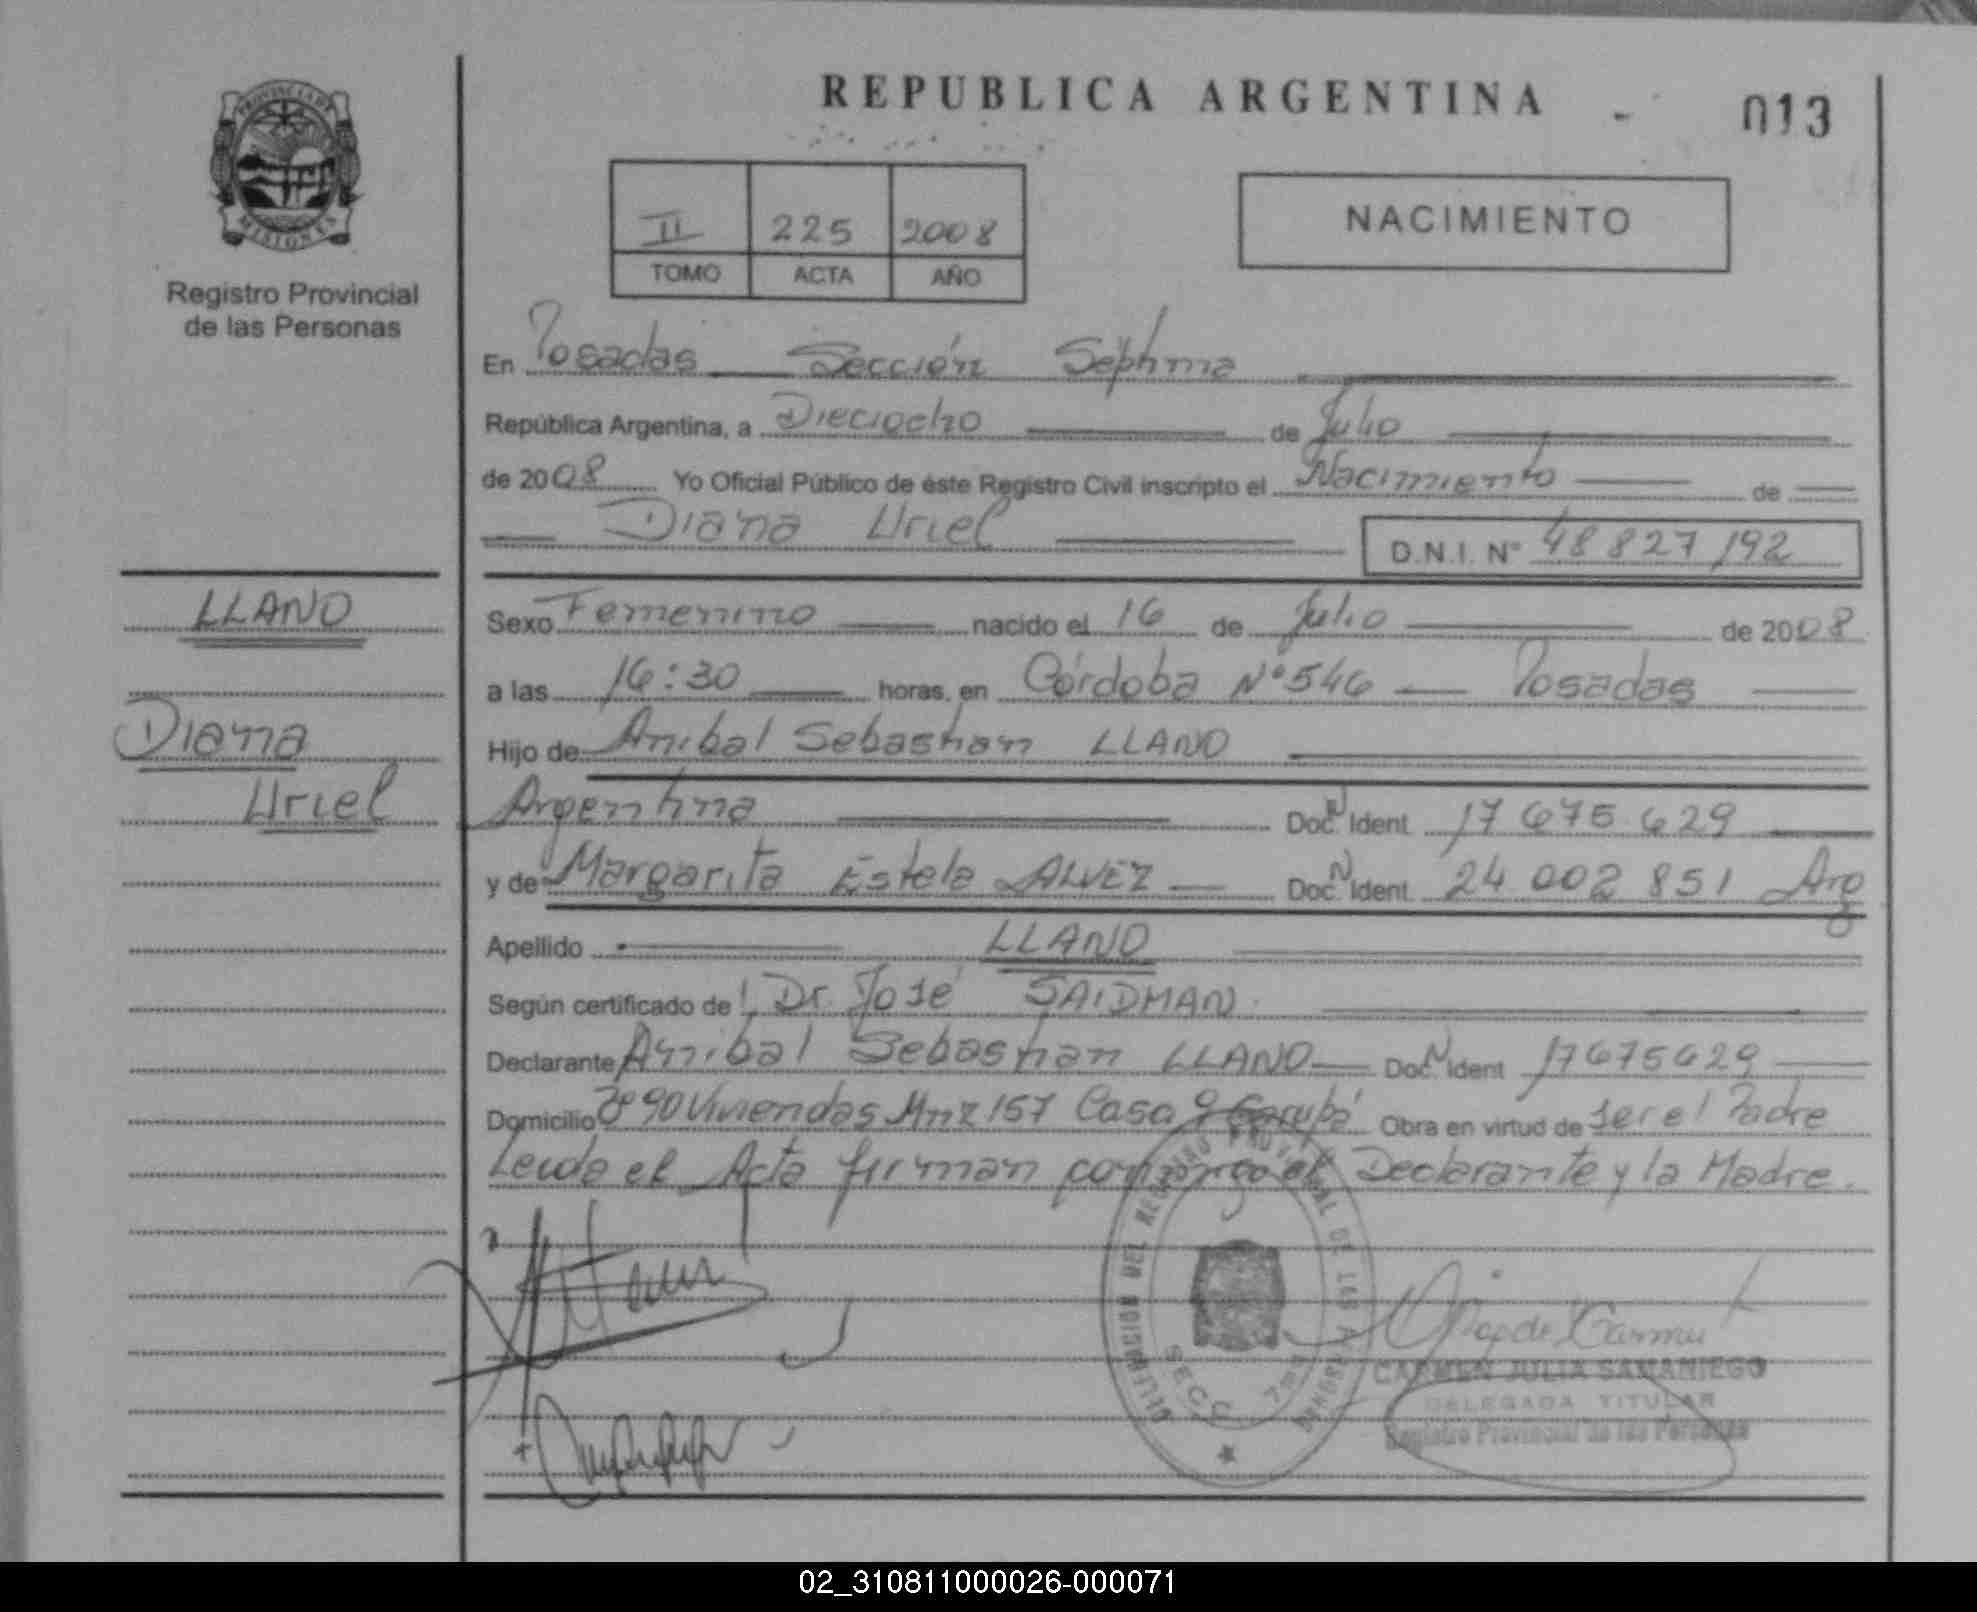 REPUBLICA ARGENTINA
013
PROVINCIA DE
MISIONES
Registro Provincial
de las Personas
II 225 2008
TOMO ACTA AÑO
NACIMIENTO
En Posadas Sección Séptima
República Argentina, a Dieciocho de Julio
de 2008 Yo Oficial Público de éste Registro Civil inscripto el Nacimiento de
Diana Uriel D.N.I. Nº 48 827 192
LLANO
Diana
Uriel
Sexo Femenino nacido el 16 de Julio de 2008
a las 16:30 horas, en Córdoba Nº 546 Posadas
Hijo de Anibal Sebastian LLANO
Argentina Doc. N Ident 17 675 629
y de Margarita Estela ALVEZ Doc. N Ident 24 002 851 Arg
Apellido LLANO
Según certificado de Dr. José SAIDMAN
Declarante Anibal Sebastian LLANO Doc. N Ident 17675629
Domicilio 90 Viviendas Mnz 157 Casa 9 Garupá Obra en virtud de ser el Padre
Leida el Acta firman conmigo el Declarante y la Madre.
DELEGACION DEL REGISTRO PROVINCIAL DE LAS PERSONAS
SECC. 7ma
CARMEN JULIA SAMANIEGO
DELEGADA TITULAR
Registro Provincial de las Personas
02_310811000026-000071